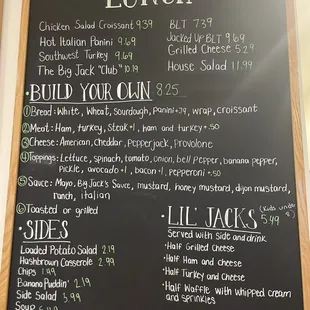 LUNCH
Chicken Salad Croissant 9.39
Hot Italian Panini 9.69
Southwest Turkey 9.69
The Big Jack "Club" 10.19
BLT 7.39
Jacked Up BLT 9.69
Grilled Cheese 5.29
House Salad 11.99
• BUILD YOUR OWN 8.25
① Bread: White, Wheat, sourdough, panini +.79, wrap, croissant
② Meat: Ham, turkey, Steak +1, ham and turkey +.50
③ Cheese: American, Cheddar, Pepperjack, Provolone
④ Toppings: Lettuce, spinach, tomato, onion, bell pepper, banana pepper,
pickle, avocado +1, bacon +1, pepperoni +.50
⑤ Sauce: Mayo, Big Jack's Sauce, mustard, honey mustard, dijon mustard,
ranch, italian
⑥ Toasted or grilled
• SIDES
Loaded Potato Salad 2.19
Hashbrown Casserole 2.99
Chips 1.49
Banana Puddin' 2.19
Side Salad 5.99
Soup
• LIL' JACKS 5.49 (Kids under
Served with side and drink
• Half Grilled Cheese
• Half Ham and Cheese
• Half Turkey and Cheese
• Half Waffle with whipped cream
and sprinkles